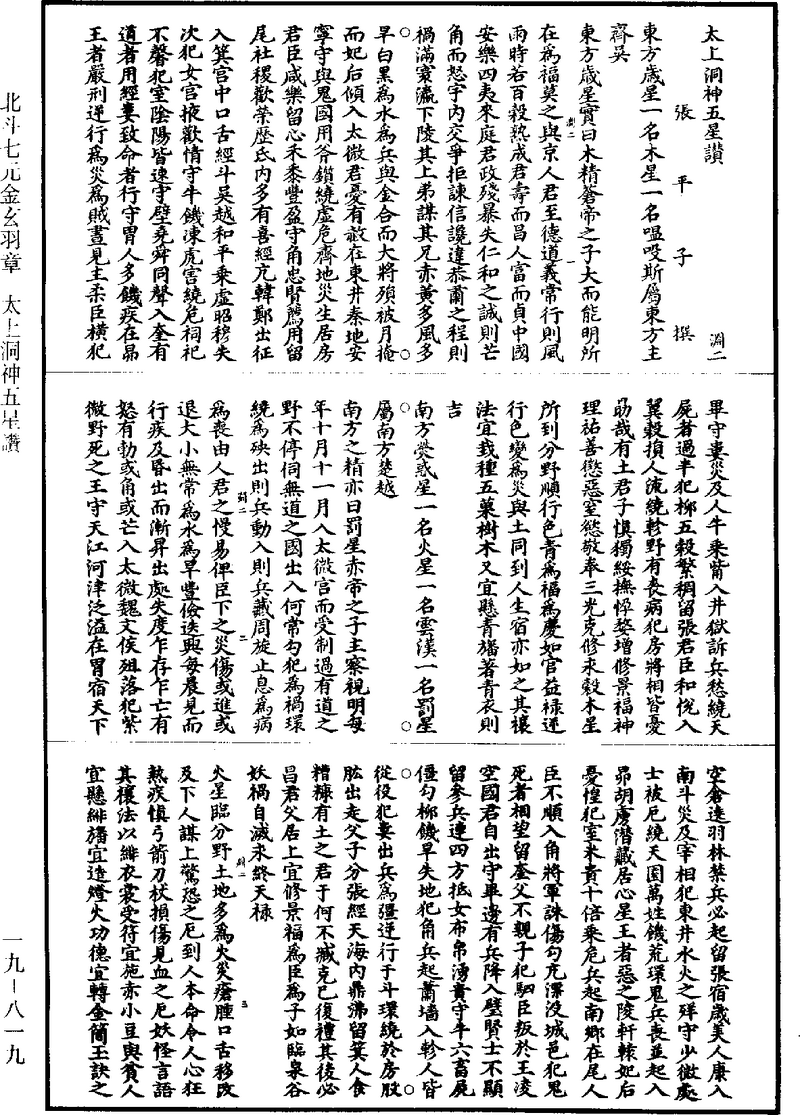 太上洞神五星讃
張平子撰
淵二
東方歲星一名木星一名嗢㕧斯屬東方主
齊吳
東方歲星寶曰木精蒼帝之子大而能明所
在為福莫之與京人君至德道義常行則風
雨時若百穀熟成君壽而昌人富而貞中國
安樂四夷來庭君政殘暴失仁和之誠則芒
角而怒宇內交爭拒諫信讒違恭肅之程則
禍滿寰瀛下陵其上弟謀其兄赤黃多風多
旱白黑為水為兵與金合而大將殞被月掩
而妃后傾入太微君憂有赦在東井秦地安
寧守與鬼國用斧鑕繞虛危齊地災生居房
君臣咸樂留心禾黍豐盈守角忠賢薦用留
尾社稷歡榮歷氐內多有喜經亢韓鄭出征
入箕宮中口舌經斗吳越和平乘虛昭穆失
次犯女宮掖歡情守牛饑凍虎害繞危祠祀
不馨犯室陰陽皆速守壁堯舜同聲入奎有
道者用經婁致命者行守胃人多饑疾在昴
王者嚴刑逆行為災為賊晝見主柔臣橫犯
畢守婁災及人牛乘觜入井獄訴兵愁繞天
屍者過半犯柳五穀繁稠留張君臣和悅入
翼穀損人流繞軫野有喪病犯房將相皆憂
勛哉有土君子慎獨綏撫惸嫠增修景福神
理祐善懲惡窒慾敬奉三光克修永穀木星
所到分野順行色青為福為慶如官益祿逆
行色變為災與土同到人生宿亦如之其禳
法宜栽種五菓樹木又宜懸青旛著青衣則
吉
南方熒惑星一名火星一名雲漢一名罰星
屬南方楚越
南方之精亦曰罰星赤帝之子主察視明每
年十月十一月入太微宮而受制過有道之
野不停伺無道之國出入何常勾犯為禍環
繞為殃出則兵動入則兵藏周旋止息為病
為喪由人君之慢易俾臣下之災傷或進或
退大小無常為水為旱豐儉迭興每晨見而
行疾及昏出而漸昇出處失度乍存乍亡有
怒有勃或角或芒入太微魏文侯殂落犯紫
微野死之王守天江河津泛溢在胃宿天下
空倉逵羽林禁兵必起留張宿歲美人康入
南斗災及宰相犯東井水火之殃守少微處
士被戹繞天囷萬姓饑荒環鬼兵喪並起入
昴胡虜潛藏居心星王者惡之陵軒轅妃后
憂惶犯室米貴十倍乘危兵起南鄉在尾人
臣不順入角將軍誅傷勾亢漂沒城邑犯鬼
死者相望留奎父不親子犯駟臣叛於王凌
空國君自出守畢邊有兵降入壁賢士不顯
留參兵連四方抵女布帛湧貴守牛六畜屍
僵勾柳饑旱失地犯角兵起蕭墻入軫人皆
從役犯婁出兵為疆逆行于斗環繞於房股
肱出走父子分張經天海內鼎沸留箕人食
糟糠有土之君于何不臧克己復禮其後必
昌君父居上宜修景福為臣為子如臨泉谷
妖禍自滅永終天祿
火星臨分野土地多為火災瘡腫口舌移改
及下人謀上驚恐之厄到人本命令人心狂
熱疾慎弓箭刀杖損傷見血之厄妖怪言語
其禳法以緋衣裳受符宜施赤小豆與貧人
宜懸緋旛宜造燈火功德宜轉金簡玉訣之
淵二
一
淵二
二
淵二
三
北斗七元金玄羽章　太上洞神五星讚
一九-八一九